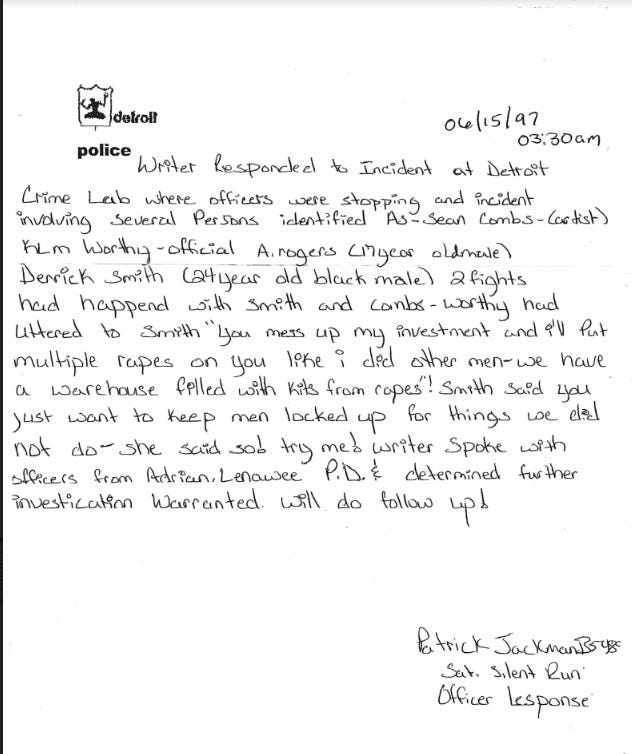 detroit
police
06/15/97
03:30am
Writer Responded to Incident at Detroit
Crime Lab where officers were stopping and incident
involving several Persons identified As-Sean Combs-(artist)
KLM Worthy-official A.rogers (17year oldmale)
Derrick Smith (24year old black male) 2 fights
had happend with Smith and Combs-worthy had
uttered to Smith "you mess up my investment and i'll Put
multiple rapes on you like i did other men-we have
a warehouse filled with Kits from rapes"! Smith said you
just want to keep men locked up for things we did
not do-she said sob try me! writer Spoke with
officers from Adrian, Lenawee P.D. & determined further
investication Warranted. will do follow up!
Patrick Jackman
Sat. Silent Run
Officer Lesponse